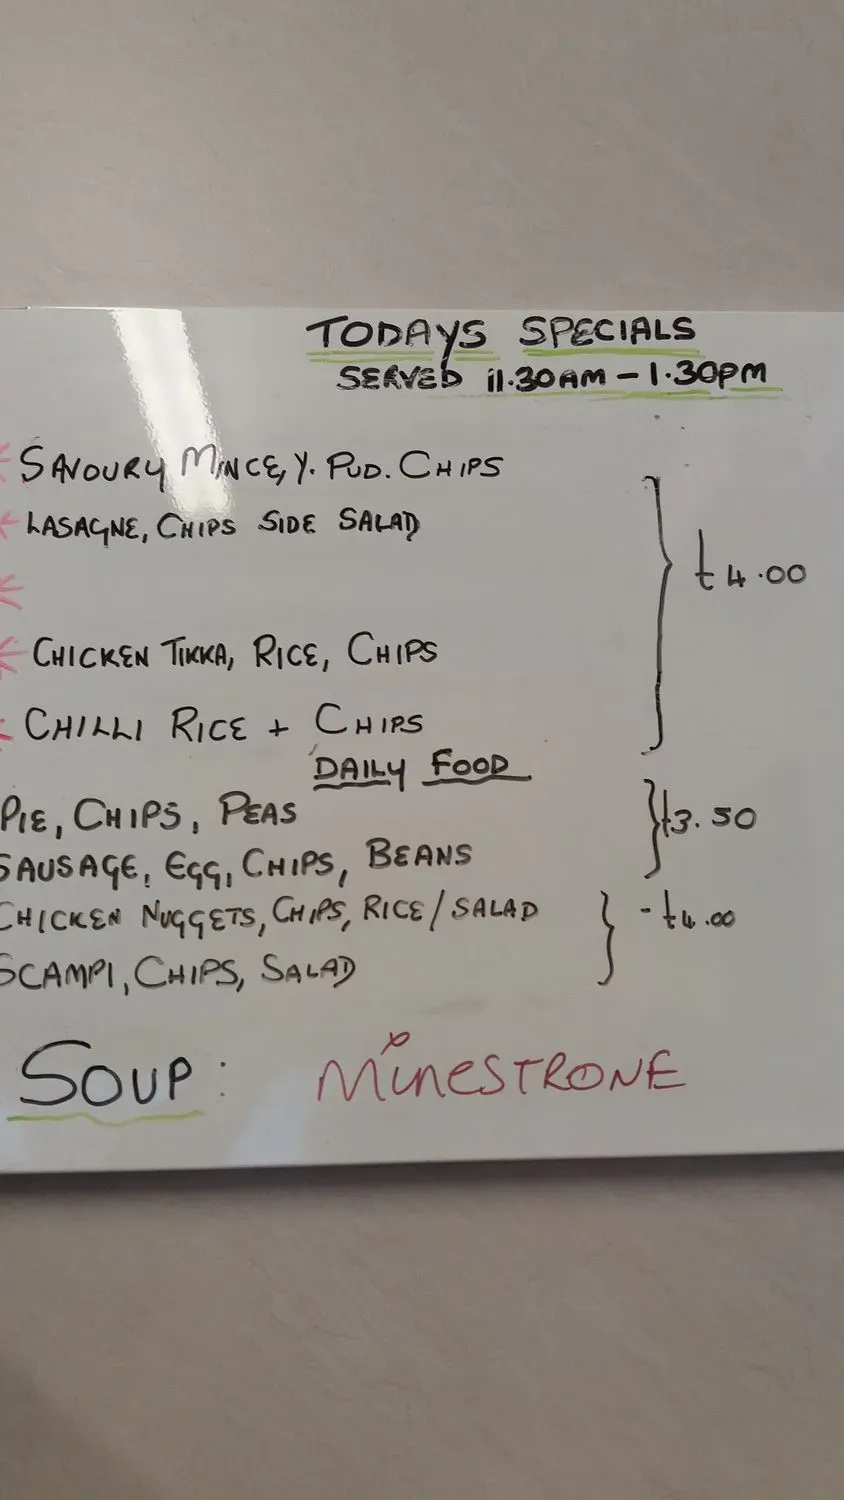 TODAYS SPECIALS
SERVED 11.30AM - 1.30PM
SAVOURY MINCE, Y. PUD. CHIPS
LASAGNE, CHIPS SIDE SALAD
£4.00
CHICKEN TIKKA, RICE, CHIPS
CHILLI RICE + CHIPS
DAILY FOOD
PIE, CHIPS, PEAS
£3.50
SAUSAGE, EGG, CHIPS, BEANS
CHICKEN NUGGETS, CHIPS, RICE/SALAD - £4.00
SCAMPI, CHIPS, SALAD
SOUP: MINESTRONE